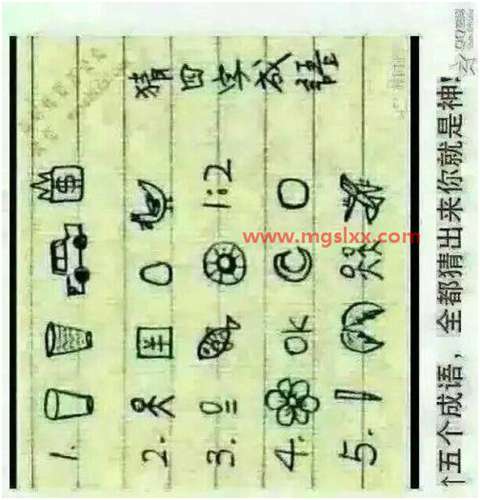 猜四字成語
1. $
2.
3. 1:2
4. OK C O
5.
↑五个成语，全都猜出来你就是神!
www.mgslxx.com